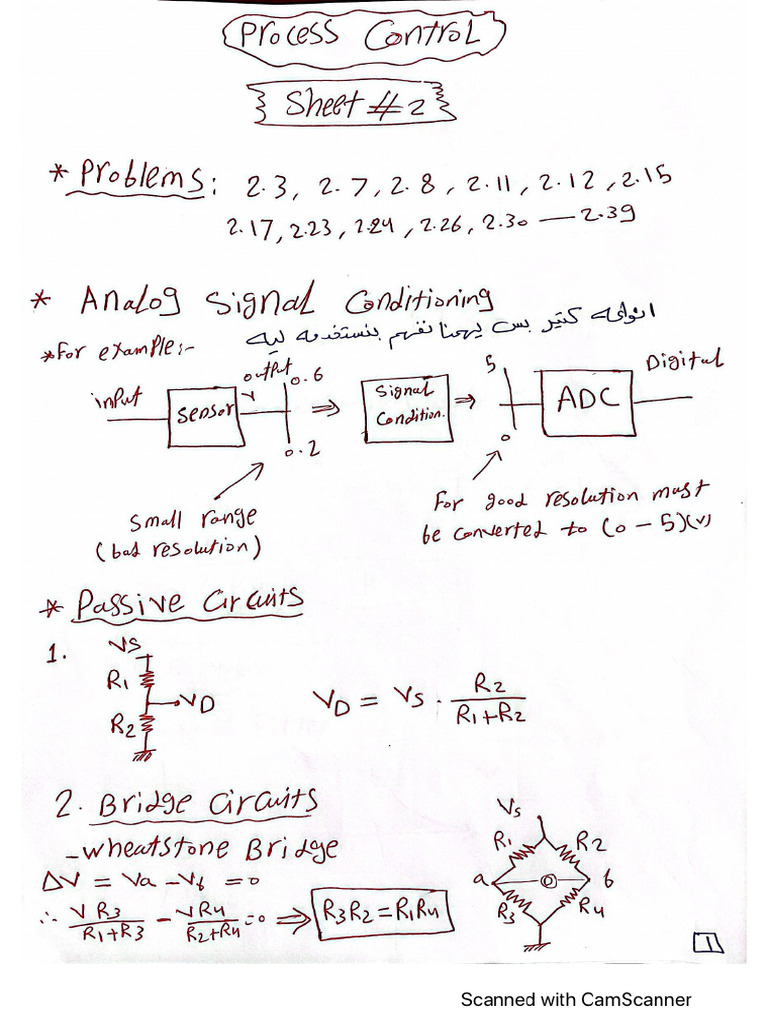 Process Control
Sheet #2
* Problems: 2.3, 2.7, 2.8, 2.11, 2.12, 2.15
2.17, 2.23, 2.24, 2.26, 2.30 — 2.39
* Analog Signal Conditioning
انواعه كتير بس يهمنا نفهم بنستخدمه ليه
*For example:-
input
Sensor
output
0.6
0.2
⇒
Signal
Condition.
⇒
5
0
ADC
Digital
small range
(bad resolution)
For good resolution must
be converted to (0 – 5)(V)
* Passive Circuits
1.
VS
R1
VD
R2
VD = VS . R2 / R1+R2
2. Bridge Circuits
- Wheatstone Bridge
ΔV = Va - Vb = 0
∴ V R3 / R1+R3 - V R4 / R2+R4 = 0 ⇒ R3R2 = R1R4
Vs
R1
R2
a
b
R3
R4
1
Scanned with CamScanner